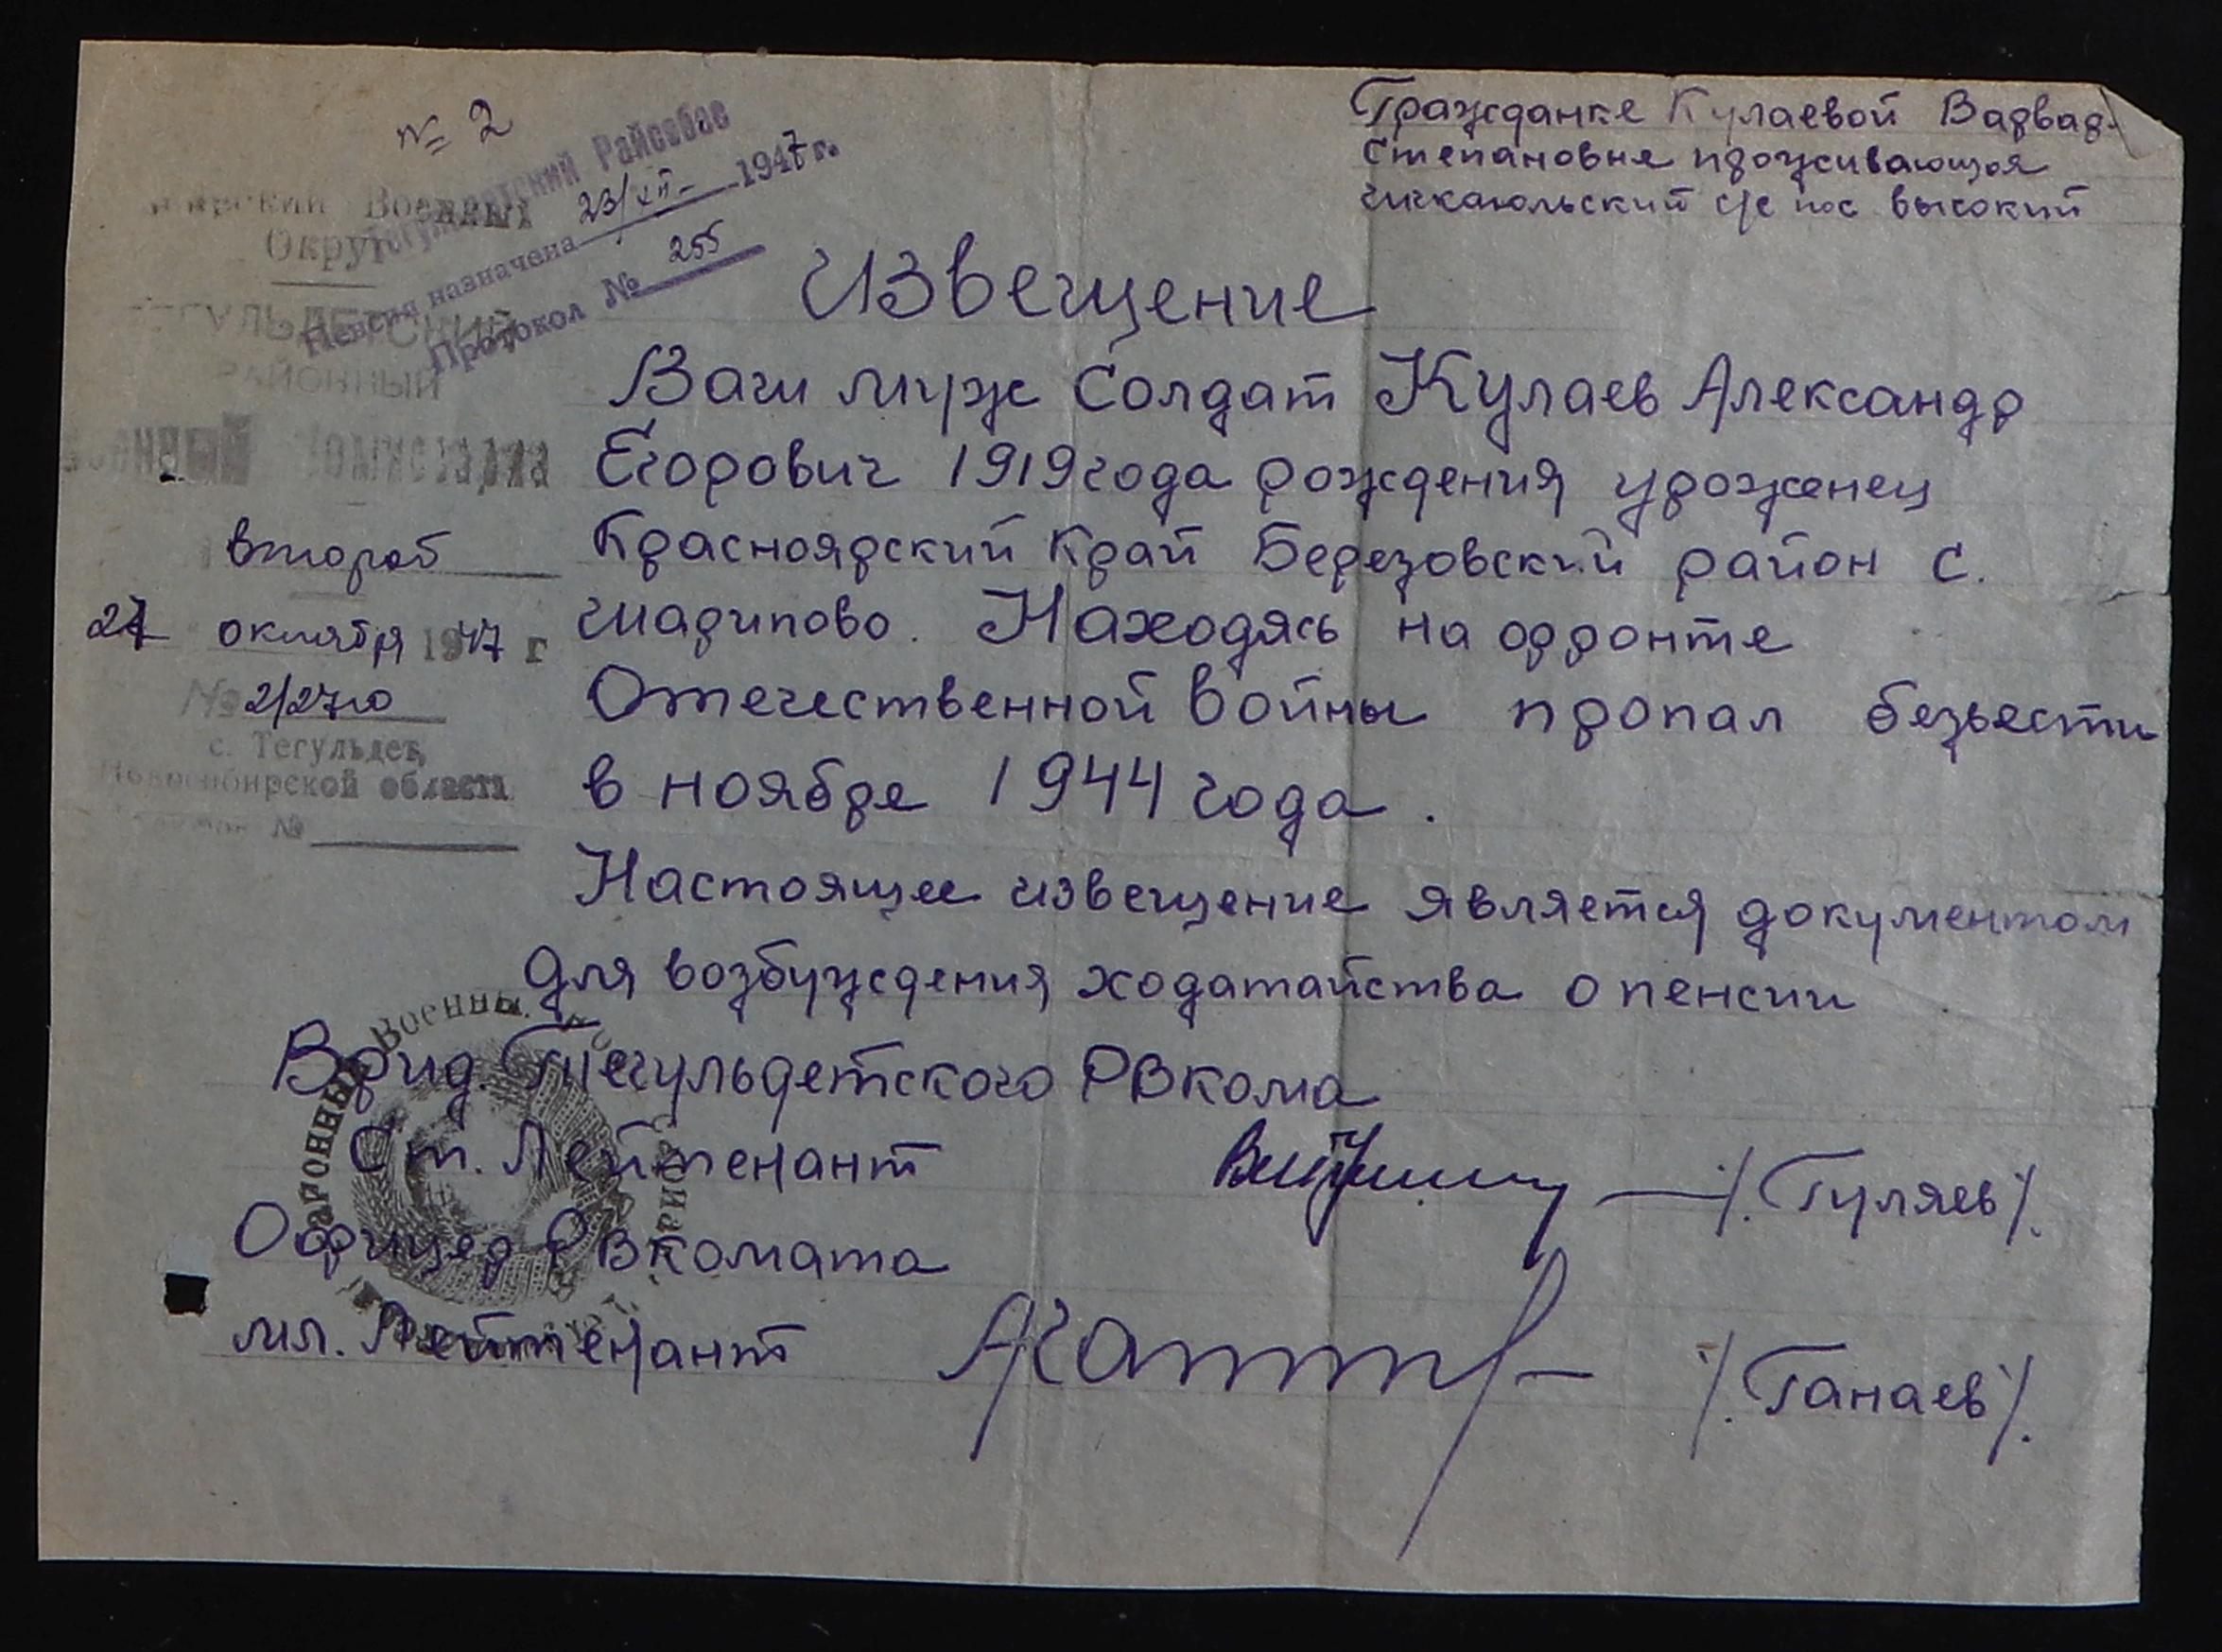 № 2
Гражданке Кулаевой Варвар
Степановне проживающая
чичкаюльский с/с пос высокий
Тегульдетский Райсобес
Пенсия назначена 23/XII- 1947 г.
Протокол № 255
Военный
Округ
ТЕГУЛЬДЕТСКИЙ
РАЙОННЫЙ
Военный Комиссариа
второб
27 октября 1947 г
№ 2/2710
с. Тегульдет,
Новосибирской области
№
Извещение
Ваш муж Солдат Кулаев Александр
Егорович 1919 года рождения уроженец
Красноярский Край Березовский район с.
шарипово. Находясь на фронте
Отечественной Войны пропал безвести
в ноябре 1944 года.
Настоящее извещение является документом
для возбуждения ходатайства о пенсии
Врид. Тегульдетского РВкома
Ст. Лейтенант /.Гуляев/.
Офицер РВкомата
мл. Лейтенант /.Танаев/.